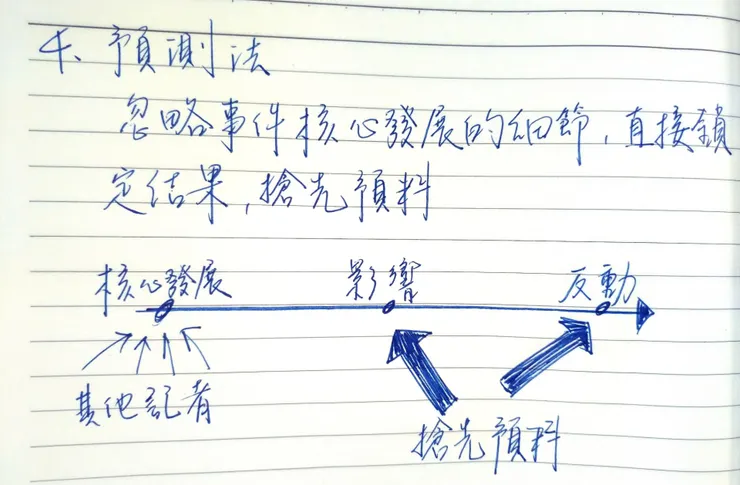 4、預測法
忽略事件核心發展的細節,直接鎖
定結果,搶先預料
核心發展 影響 反動
其他記者
搶先預料